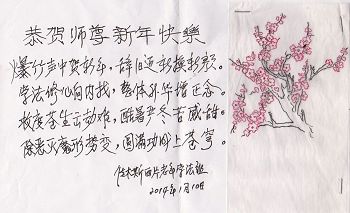 恭贺师尊新年快樂
爆竹声中贺新年，辞旧迎新换新颜。
学法修心向内找，整体升华增正念。
救度苍生云动难，酷暑严冬苦咸甜。
除恶灭魔形势变，圆满功成上苍穹。
佳木斯西片老年学法组
2014年1月10日